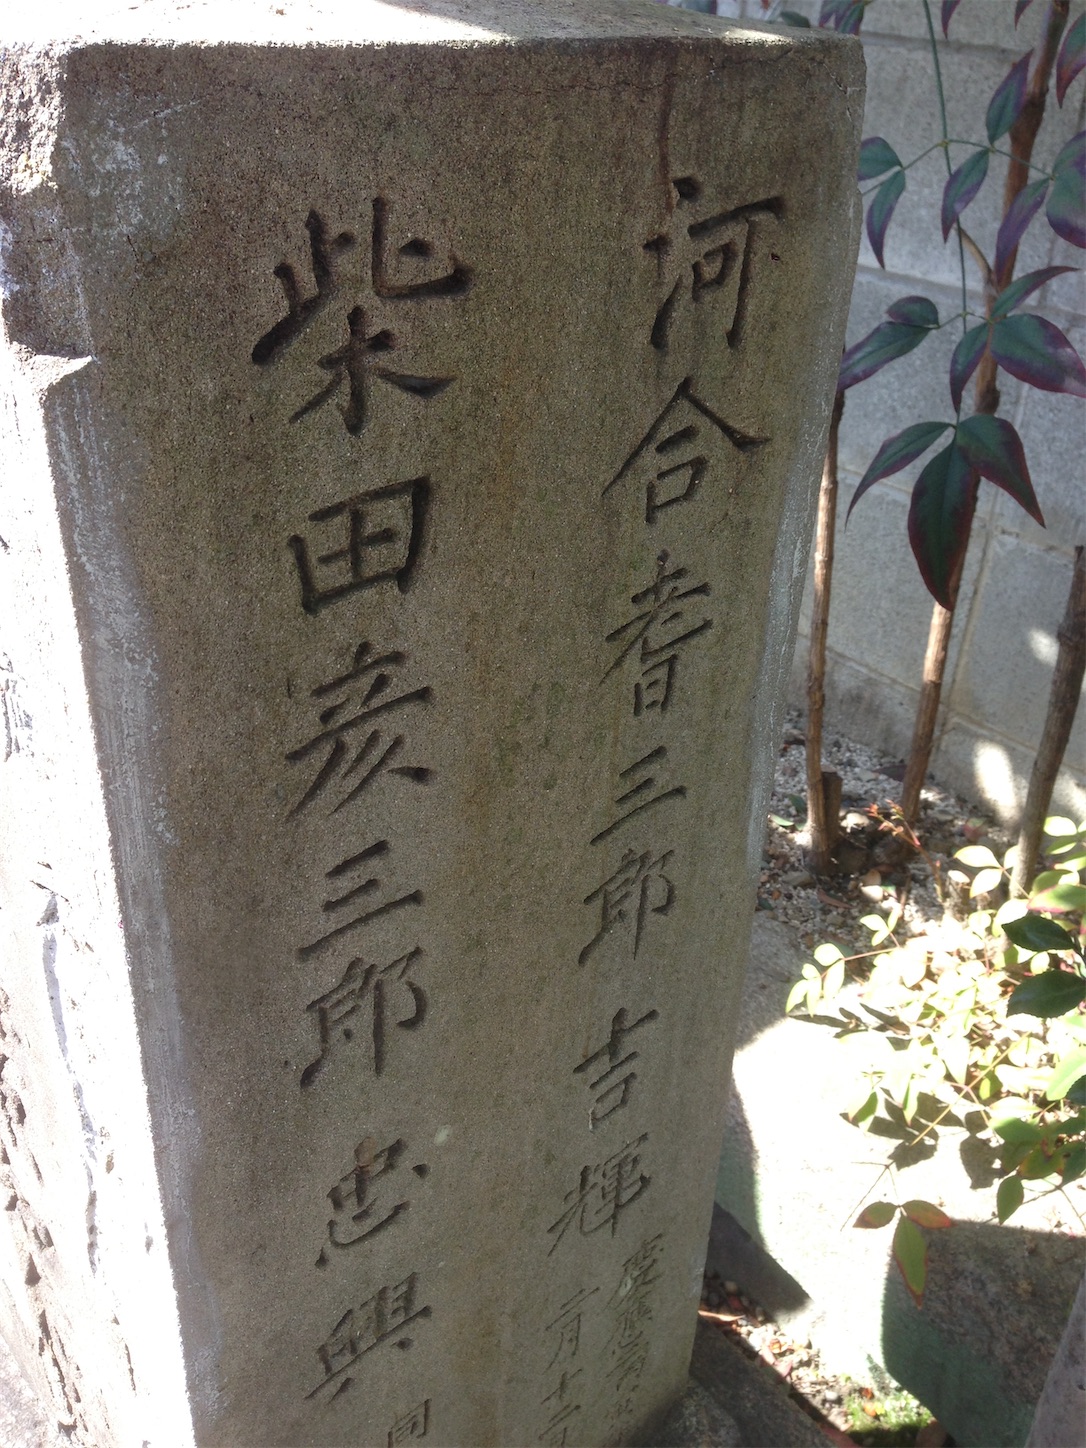 河合耆三郎吉輝
慶應
二月十二日
柴田彦三郎忠興
同